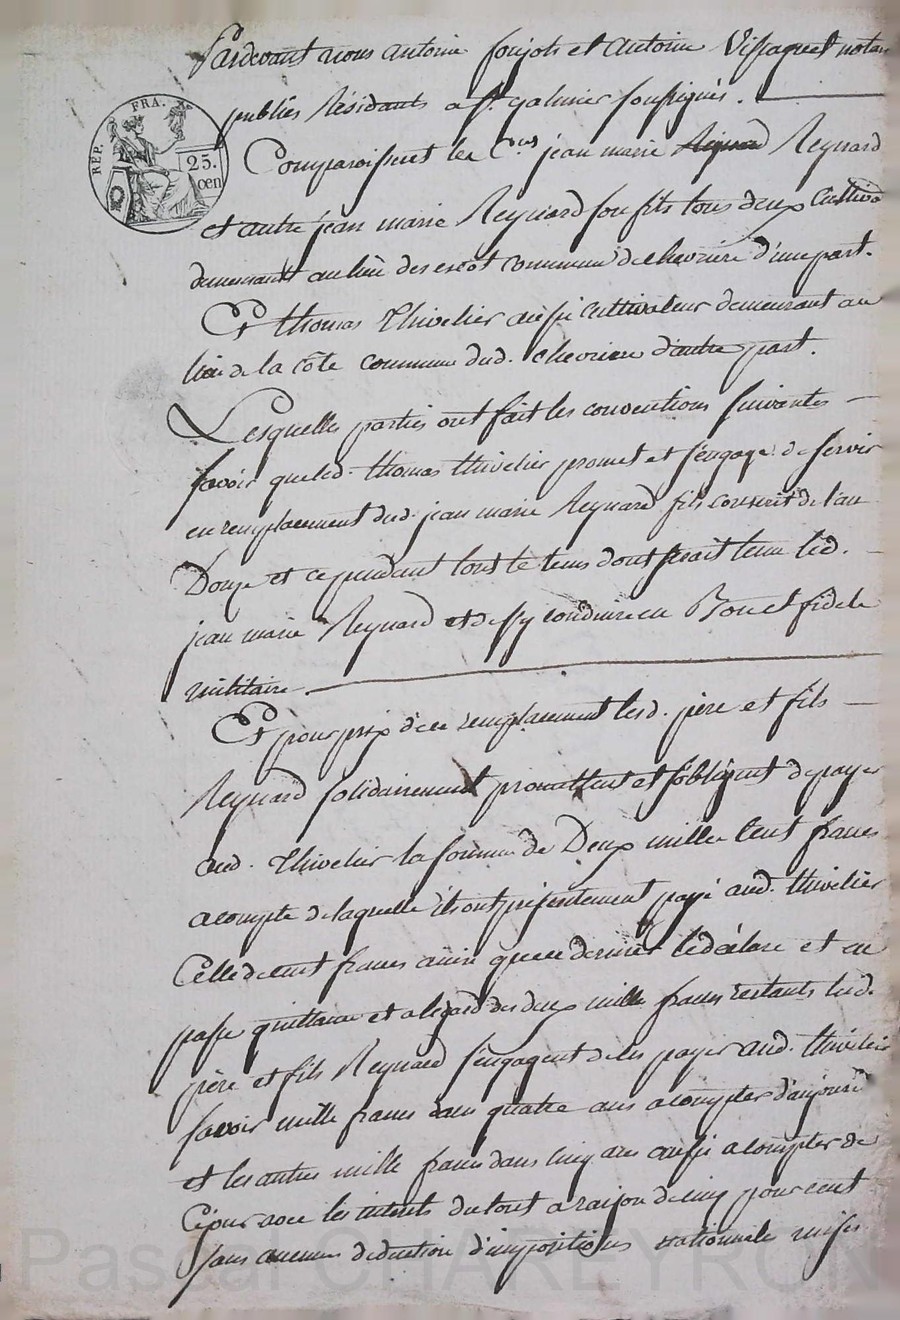 Pardevant nous antoine foujols et Antoine Vissaguet notai
publics Résidants a st. galmier soussignés.
REP. FRA.
25.
cen
Comparoissent les Cens jean marie Reynard
et autre jean marie Reynard son fils tous deux Cultiva
demeurants au lieu des commune de chevriere d'une part.
Et thomas thivelier aussi cultivateur demeurant au
lieu de la côte commune dud. chevriere d'autre part.
Lesquelles parties ont fait les conventions suivantes
savoir que led. thomas thivelier promet et s'engage de servir
en remplacement dud. jean marie Reynard fils conscrit de l'an
Douze et ce pendant tout le tems dont serait tenu led.
jean marie Reynard et de s'y conduire en Bon et fidele
militaire
Et pour prix de ce remplacement lesd. père et fils
Reynard solidairement promettent et s'obligent de payer
aud. thivelier la somme de Deux mille Cent francs
acompte de laquelle ils ont présentement payé aud. thivelier
Celle de cent francs ainsi que ce dernier le déclare et en
passe quittance et a l'égard des deux mille francs restants lesd.
père et fils Reynard s'engagent de les payer aud. thivelier
savoir mille francs dans quatre ans a compter d'aujourd
et les autres mille francs dans cinq ans aussi a compter de
Ce jour avec les interets du tout a raison de cinq pour cent
sans aucune deduction d'impositions nationnale mises
Pascal CHAREYRON